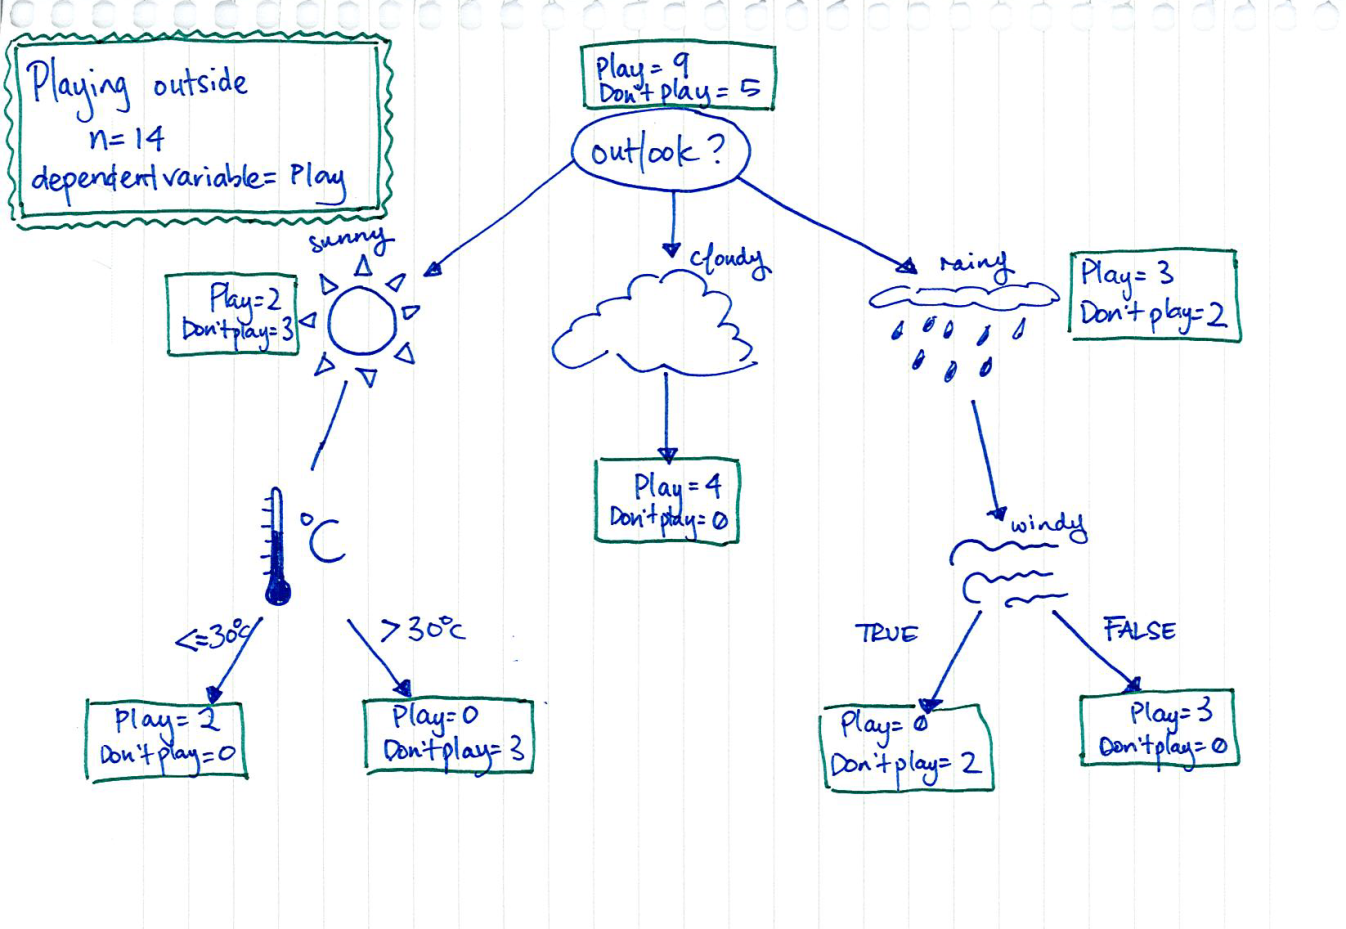 Playing outside
n=14
dependent variable= Play
Play= 9
Don't play= 5
outlook?
sunny
Play=2
Don't play=3
cloudy
rainy
Play= 3
Don't play=2
Play= 4
Don't play=0
°C
windy
<=30°C
>30°C
TRUE
FALSE
Play= 2
Don't play=0
Play=0
Don't play= 3
Play= 0
Don't play= 2
Play= 3
Don't play=0